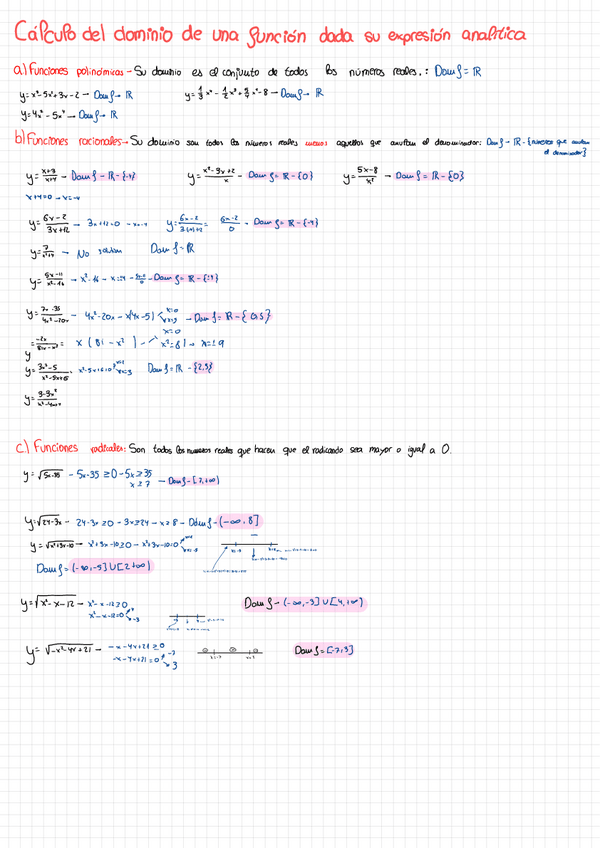 Cálculo del dominio de una función dada su expresión analítica
a) Funciones polinómicas - Su dominio es el conjunto de todos los números reales.: Dom f = ℝ
y = x³ - 5x² + 3x - 2 → Dom f → ℝ
Dom f → ℝ
y = 4x³ - 5x⁴ → Dom f → ℝ
b) Funciones racionales → Su dominio son todos los números reales menos aquellos que anulan el denominador: Dom f - ℝ - {números que anulan el denominador}
y = x+3/x+4 - Dom f - ℝ - {-4} y = x²-9x+2/x - Dom f = ℝ - {0} y = 5x-8/x² → Dom f = ℝ - {0}
x+4=0 → x=-4
y = 6x-2/3x+12 → 3x+12=0 → x=-4 6x-2/0 - Dom f = ℝ - {-4}
y = 7/x²+4 → No Dom f = ℝ
y = 5x-11/x²-16 → x²-16 - x=±4 - Dom f = ℝ - {±4}
4x²-20x - x(4x-5) x=0 → Dom f = ℝ - {0,5}
x=0
x (81 - x²) x²=81 → x=±9
y = 3x²-5/x²-5x+6 x²-5x+6=0 x=2 x=3 Dom f = ℝ - {2,3}
c) Funciones radicales: Son todos los números reales que hacen que el radicando sea mayor o igual a 0.
y = √5x-35 - 5x-35 ≥ 0 - 5x ≥ 35
x ≥ 7 → Dom f - [7,+∞)
y = √24-3x - 24-3x ≥ 0 - 3x ≥ 24 - x ≥ 8 - Dom f - (-∞, 8]
y = √x²+3x-10 → x²+3x-10 ≥ 0 - x²+3x-10=0 x=2 x=-5
Dom f = (-∞,-5] U [2+∞)
y = √x²-x-12 → x²-x-12 ≥ 0 Dom f - (-∞,-3] U [4,+∞)
x²-x-12=0 4 -3
y = √-x²-4x+21 → -x-4x+21 ≥ 0 Dom f = [-7,3]
-x-4x+21=0 -7 3